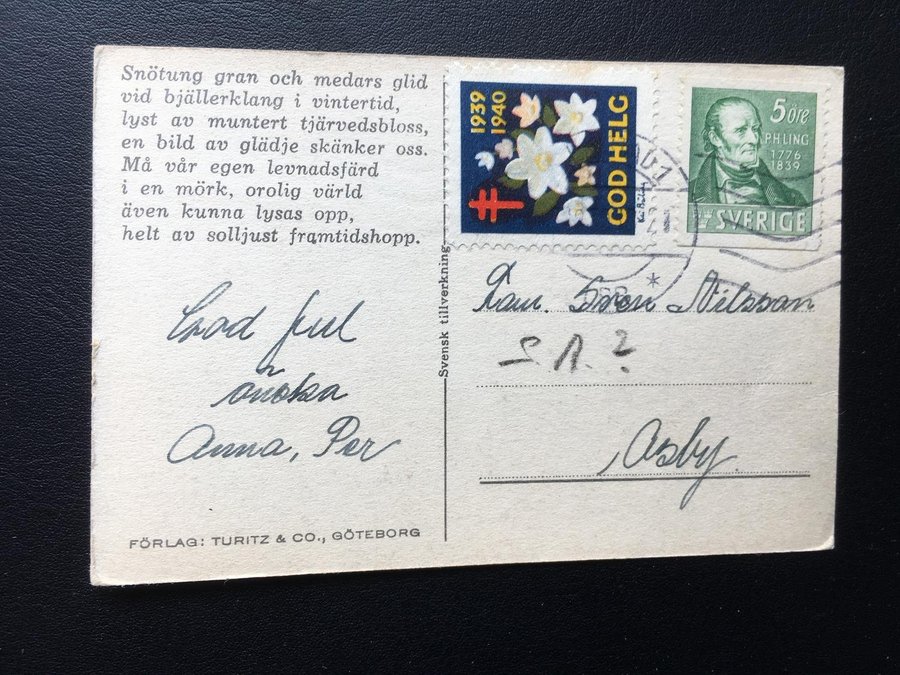 Snötung gran och medars glid
vid bjällerklang i vintertid,
lyst av muntert tjärvedsbloss,
en bild av glädje skänker oss.
Må vår egen levnadsfärd
i en mörk, orolig värld
även kunna lysas opp,
helt av solljust framtidshopp.
God jul
önska
Anna, Per
FÖRLAG: TURITZ & CO., GÖTEBORG
Svensk tillverkning
1939
1940
GOD HELG
5 öre
P.H.LING
1776
1839
SVERIGE
Sven Nilsson
Asby